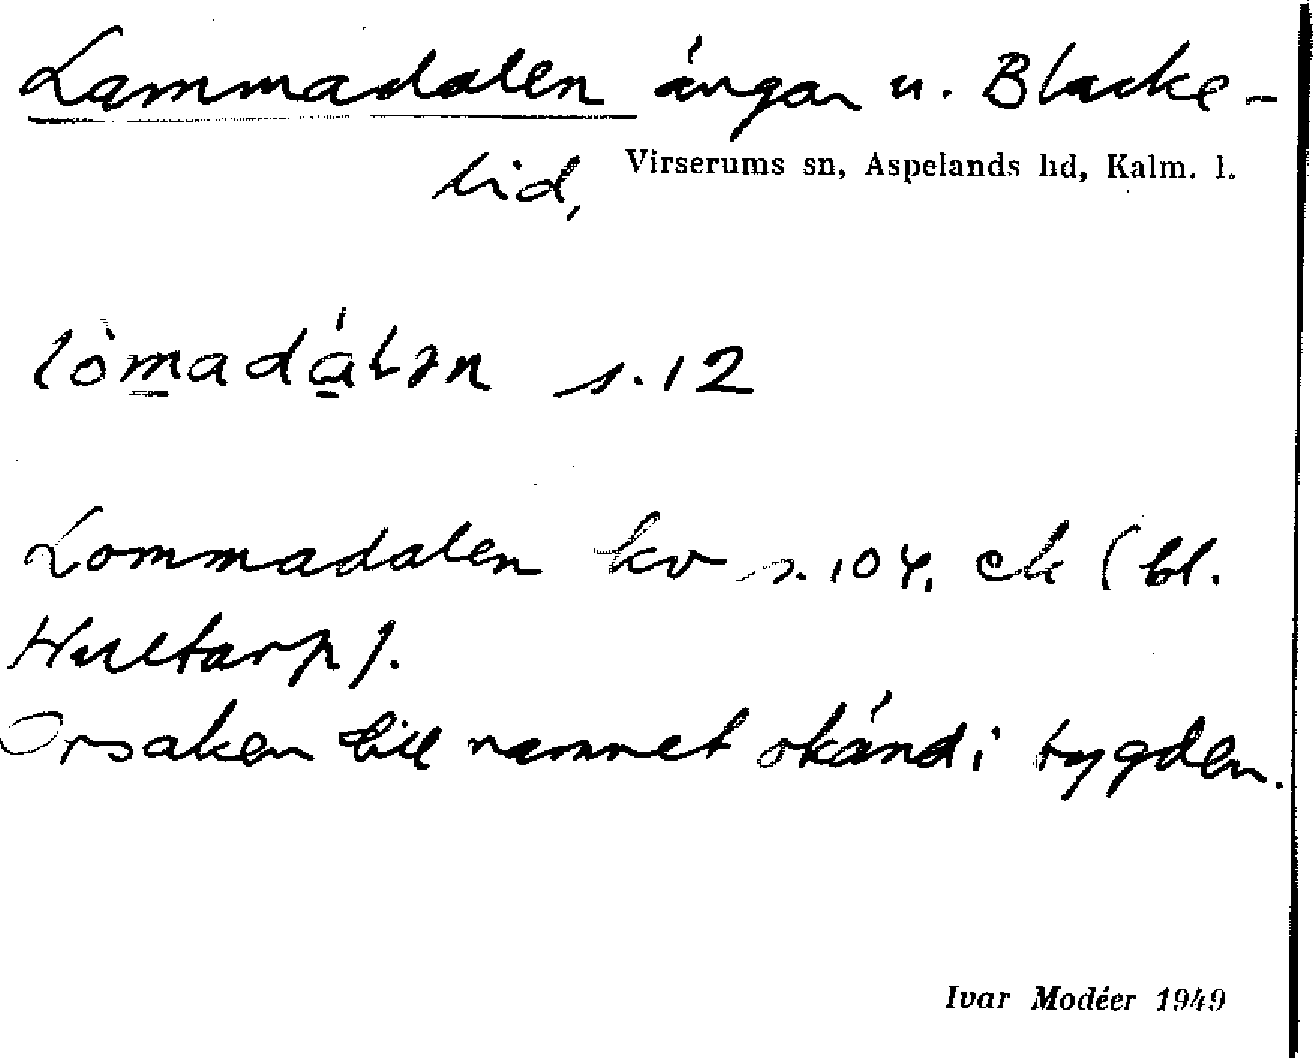 Lammadalen ängar u. Blacke-
lid, Virserums sn, Aspelands hd, Kalm. l.
lòmadálən s. 12
Lommadalen kv s. 104, ek (bl.
Hultarp).
Orsaken till namnet okänd i bygden.
Ivar Modéer 1949